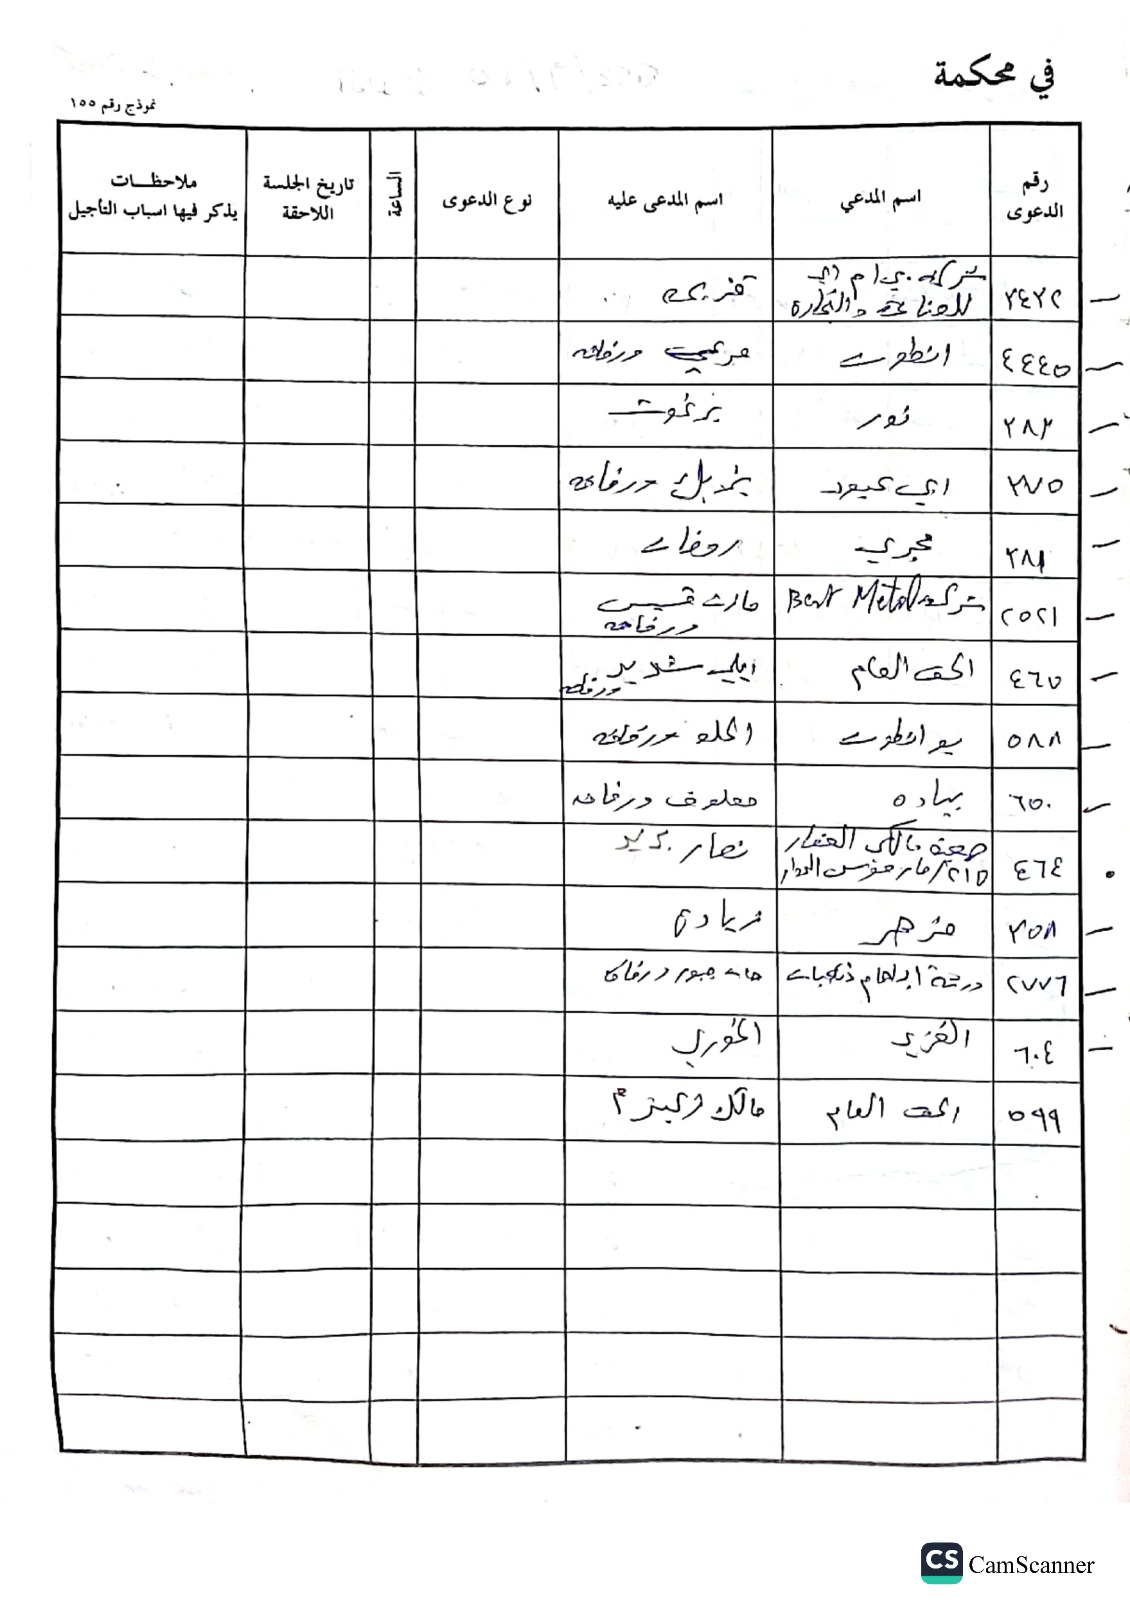 في محكمة
نموذج رقم ١٥٥
رقم الدعوى
اسم المدعي
اسم المدعى عليه
نوع الدعوى
الساعة
تاريخ الجلسة اللاحقة
ملاحظـــات
يذكر فيها اسباب التأجيل
٢٤٢٢ شركة بي ام اي
للصناعة والتجارة
٤٤٤٥ انطون مرعي ورفاقه
٢٨٢ نور برغوت
ابي عبود ورفاقه
٢٨١ مجري روفان
٢٥٢١ شركة Best Metal مارك قسيس
ورفاقه
٤٦٥ الحق العام ايلي شديد
ورفاقه
٥٨٨ بو انطون الحلو ورفاقه
٦٥٠ بياده معلوف ورفاقه
٤٦٤ جمعية مالكي العقار نصار
٢١٥/مار الدوار
٣٥٨ مزهر زيادة
٢٧٧٦ ورثة ابراهام جبور ورفاقه
٦٠٤ الغزير الخوري
٥٩٩ الحق العام مالك
CS CamScanner